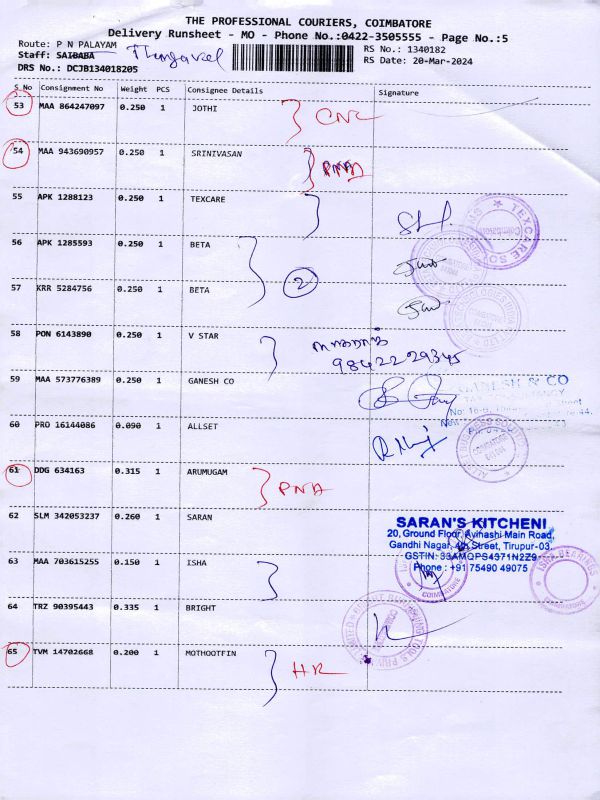 THE PROFESSIONAL COURIERS, COIMBATORE
Delivery Runsheet - MO - Phone No.:0422-3505555 - Page No.:5
Route: P N PALAYAM RS No.: 1340182
Staff: SAIBABA Thangavel RS Date: 20-Mar-2024
DRS No.: DCJB134018205
S No Consignment No Weight PCS Consignee Details Signature
53 MAA 864247097 0.250 1 JOTHI CNC
54 MAA 943690957 0.250 1 SRINIVASAN PNA
55 APK 1288123 0.250 1 TEXCARE
TEXCARE
56 APK 1285593 0.250 1 BETA
2
57 KRR 5284756 0.250 1 BETA
58 PON 6143890 0.250 1 V STAR
9842229345
59 MAA 573776389 0.250 1 GANESH CO
GANESH & CO
60 PRO 16144086 0.090 1 ALLSET
61 DDG 634163 0.315 1 ARUMUGAM PNA
62 SLM 342053237 0.260 1 SARAN
SARAN'S KITCHENI
20, Ground Floor, Avinashi Main Road,
Gandhi Nagar, 4th Street, Tirupur-03.
GSTIN: 33AMQPS4371N2Z9
Phone : +91 75490 49075
63 MAA 703615255 0.150 1 ISHA
COIMBATORE
ISHA BEARINGS
COIMBATORE
64 TRZ 90395443 0.335 1 BRIGHT
65 TVM 14702668 0.200 1 MOTHOOTFIN HR